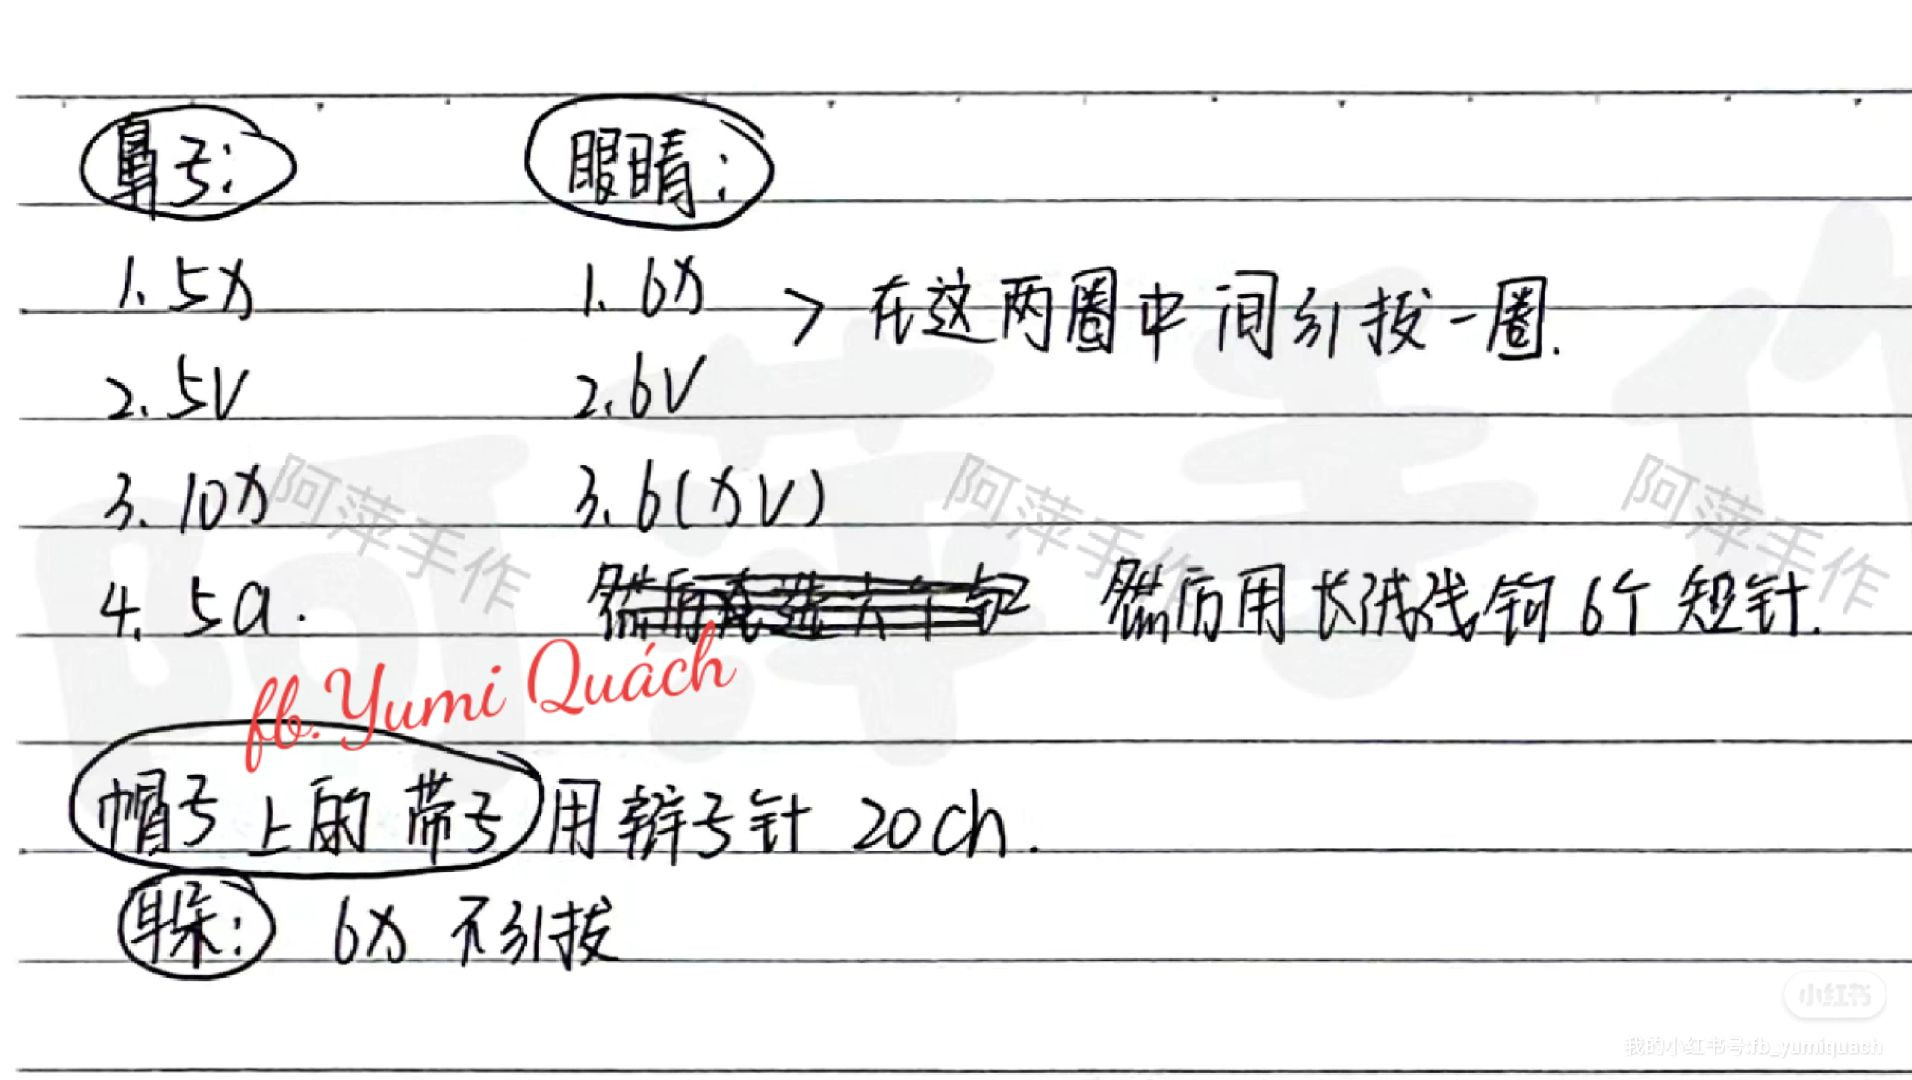 鼻子： 眼睛：
1. 5X 1. 6X > 在这两圈中间引拔一圈.
2. 5V 2. 6V
3. 10X 3. 6(XV)
4. 5a. 然后用长浅线钩6个短针.
fb. Yumi Quách
帽子上的带子 用辫子针 20ch.
耳朵： 6X 不引拔
阿萍手作
阿萍手作
阿萍手作
阿萍手作
小红书
我的小红书号:fb_yumiquach